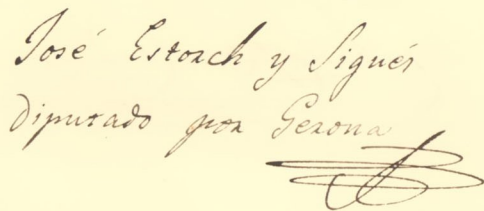 José Estorch y Sigués
Diputado por Gerona